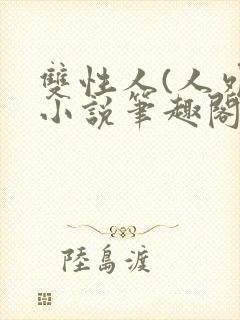 雙性人(人
小說筆趣閣
陸島渡